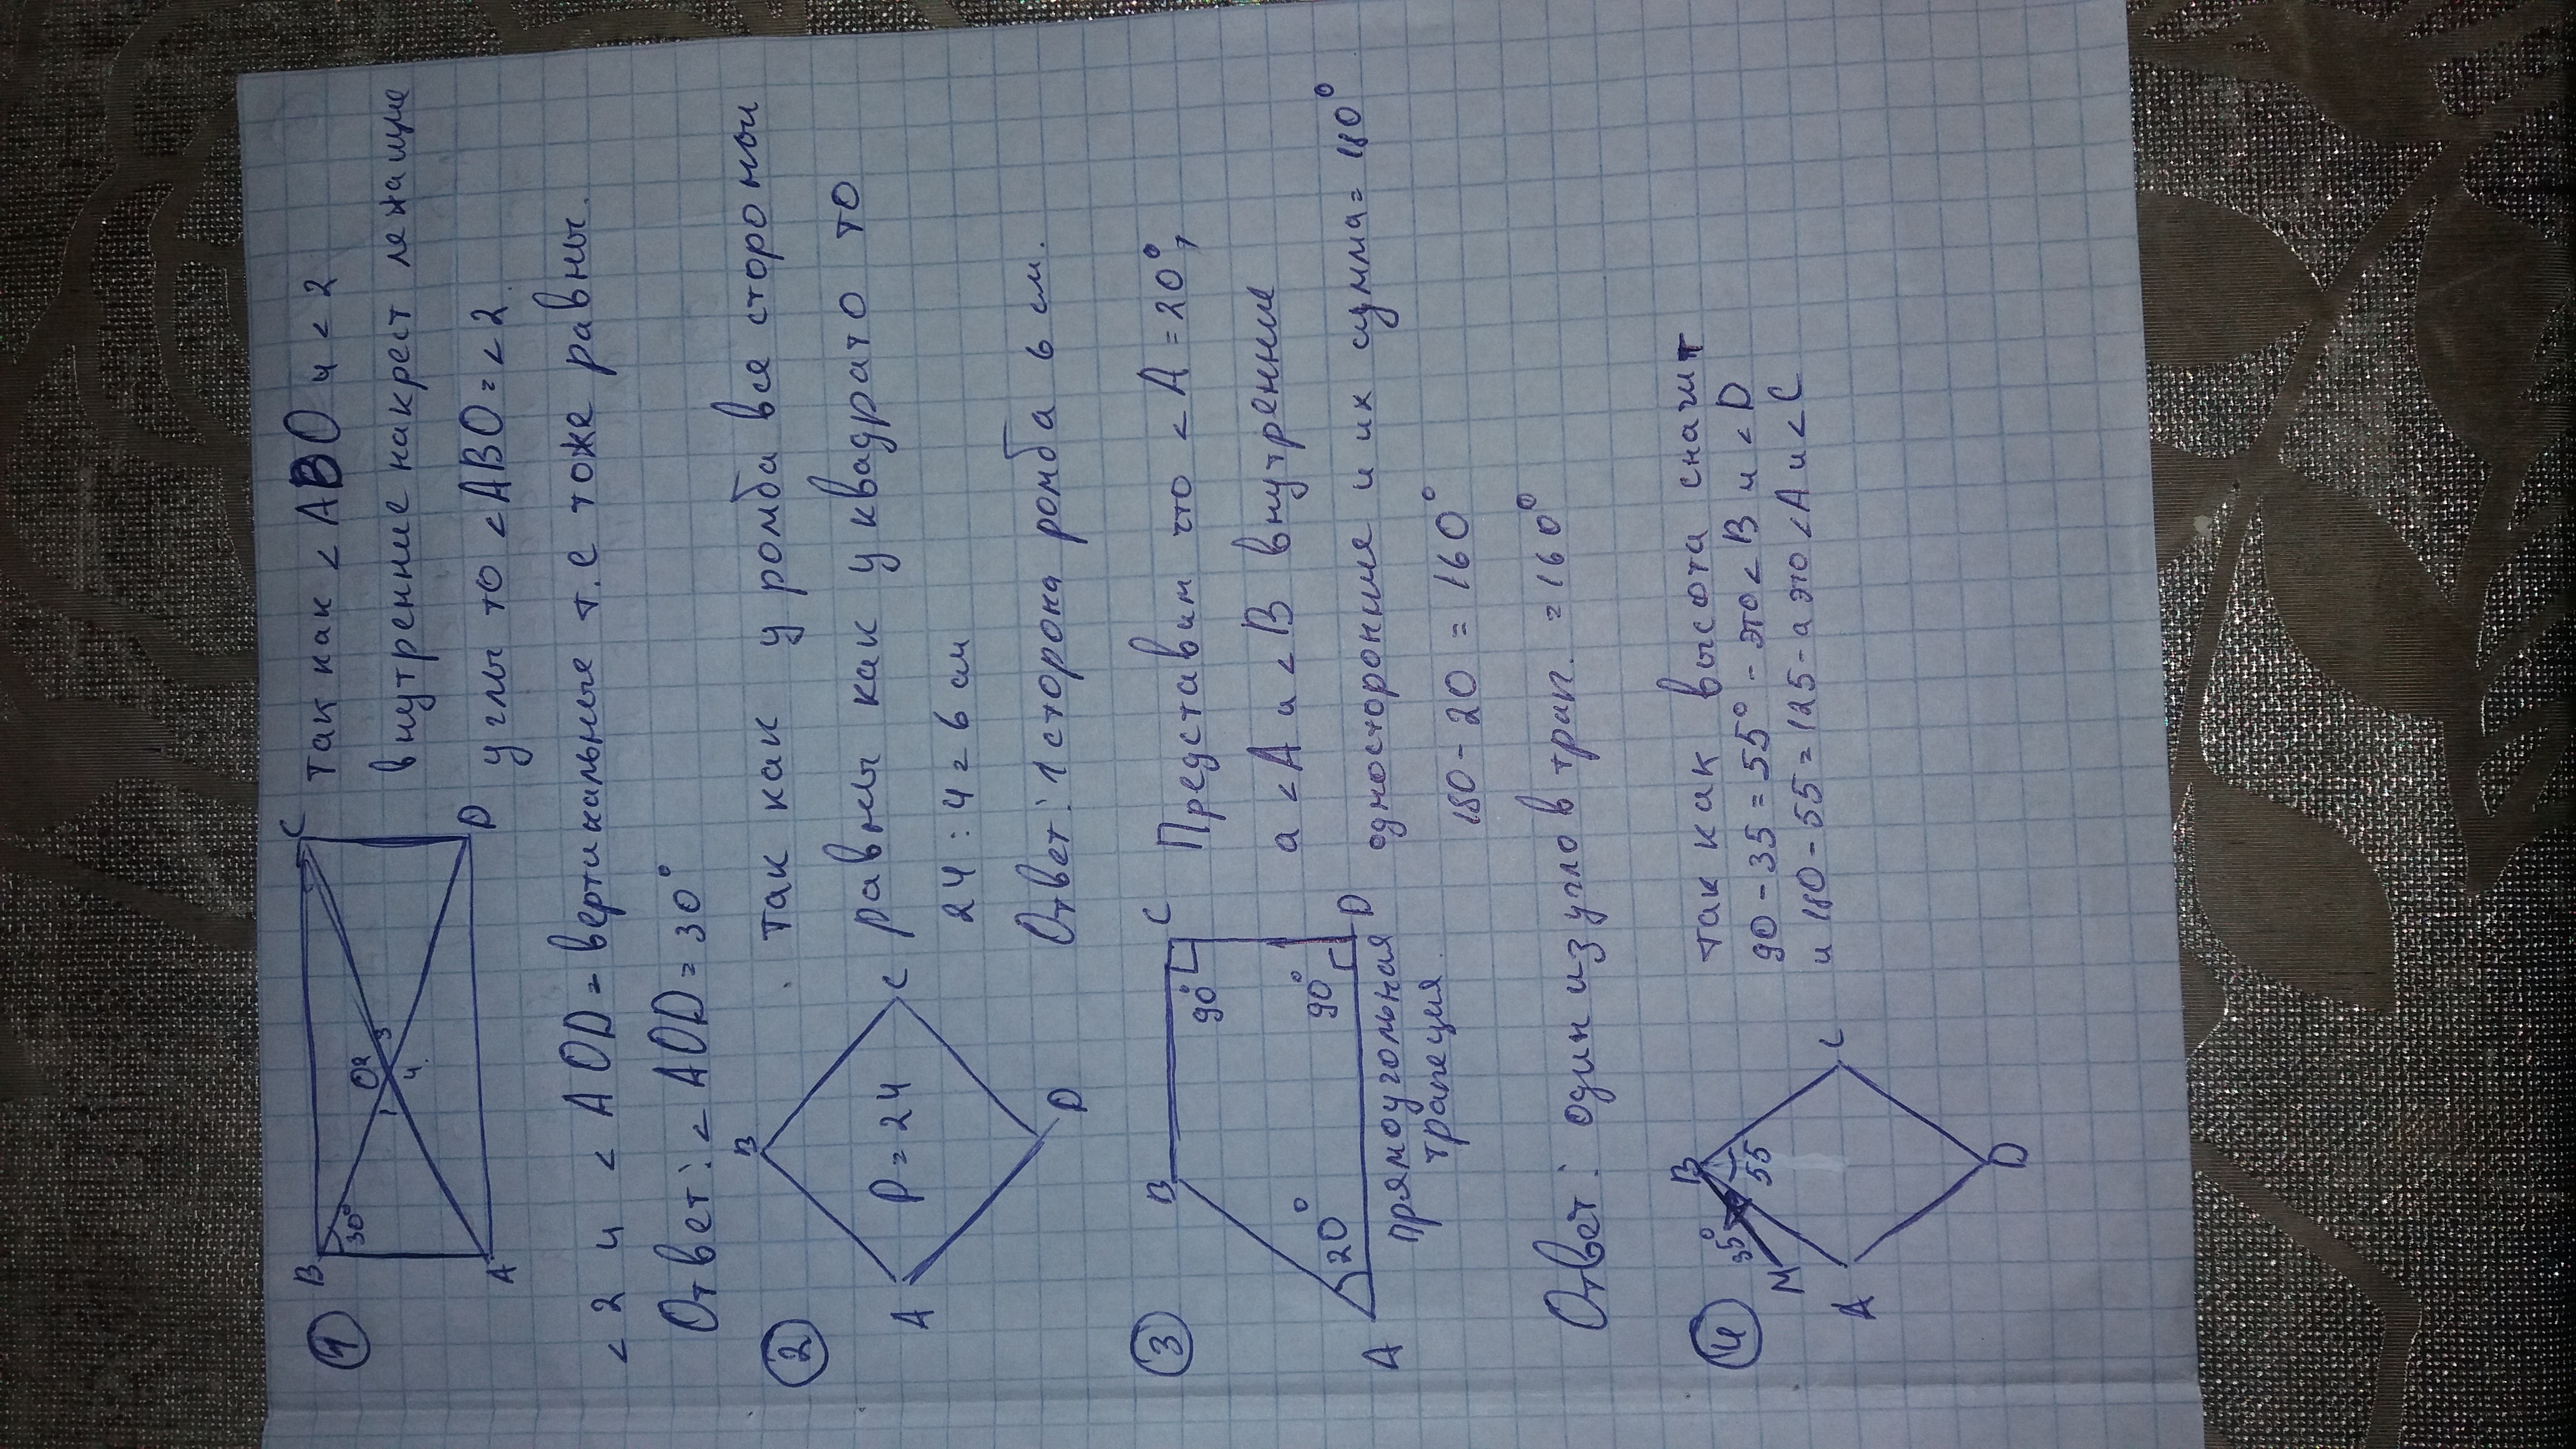 1
B
C
30°
O
2
1
3
4
A
D
Так как < ABO и < 2
внутренние накрест лежащие
углы то < ABO = < 2
< 2 и < AOD = вертикальные т.е тоже равны.
Ответ: < AOD = 30°
2
B
A
P = 24
C
D
Так как у ромба все стороны
равны как у квадрато то
24 : 4 = 6 см
Ответ: 1 сторона ромба 6 см.
3
B
C
90°
90°
20°
A
D
прямоугольная
трапеция.
Представим что < A = 20°,
а < A и < B внутренние
односторонние и их сумма = 180°
180 - 20 = 160°
Ответ: один из углов трап. = 160°
4
B
35°
55
M
A
C
D
так как высота сначит
90 - 35 = 55° - это < B и < D
и 180 - 55 = 125 - а это < A и < C